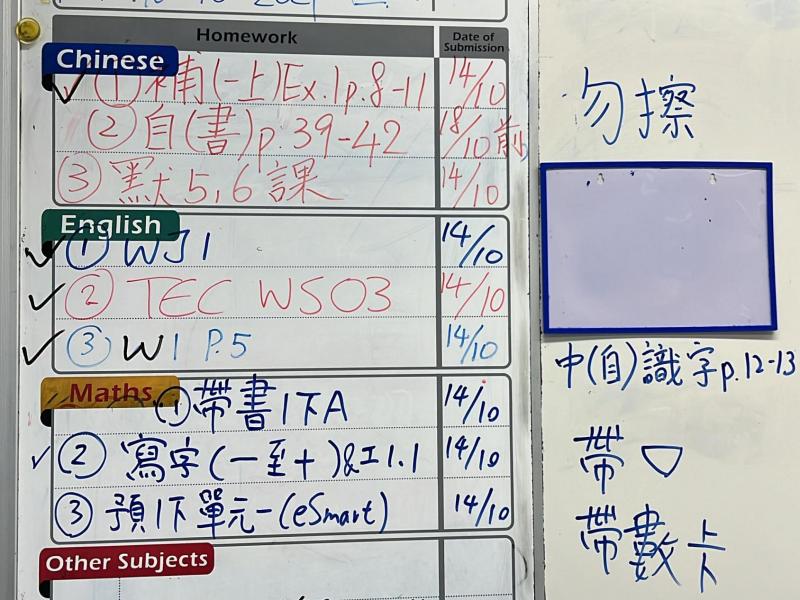 Homework
Date of Submission
Chinese
① 補(一上)Ex.1p.8-11 14/10
② 自(書)p.39-42 18/10前
③ 默5,6課 14/10
English
① WJ1 14/10
② TEC WS03 14/10
③ W1 P.5 14/10
Maths
① 帶書1下A 14/10
② 寫字(一至十)&工1.1 14/10
③ 預1下單元一(eSmart) 14/10
Other Subjects
勿擦
中(自)識字p.12-13
帶
帶數卡